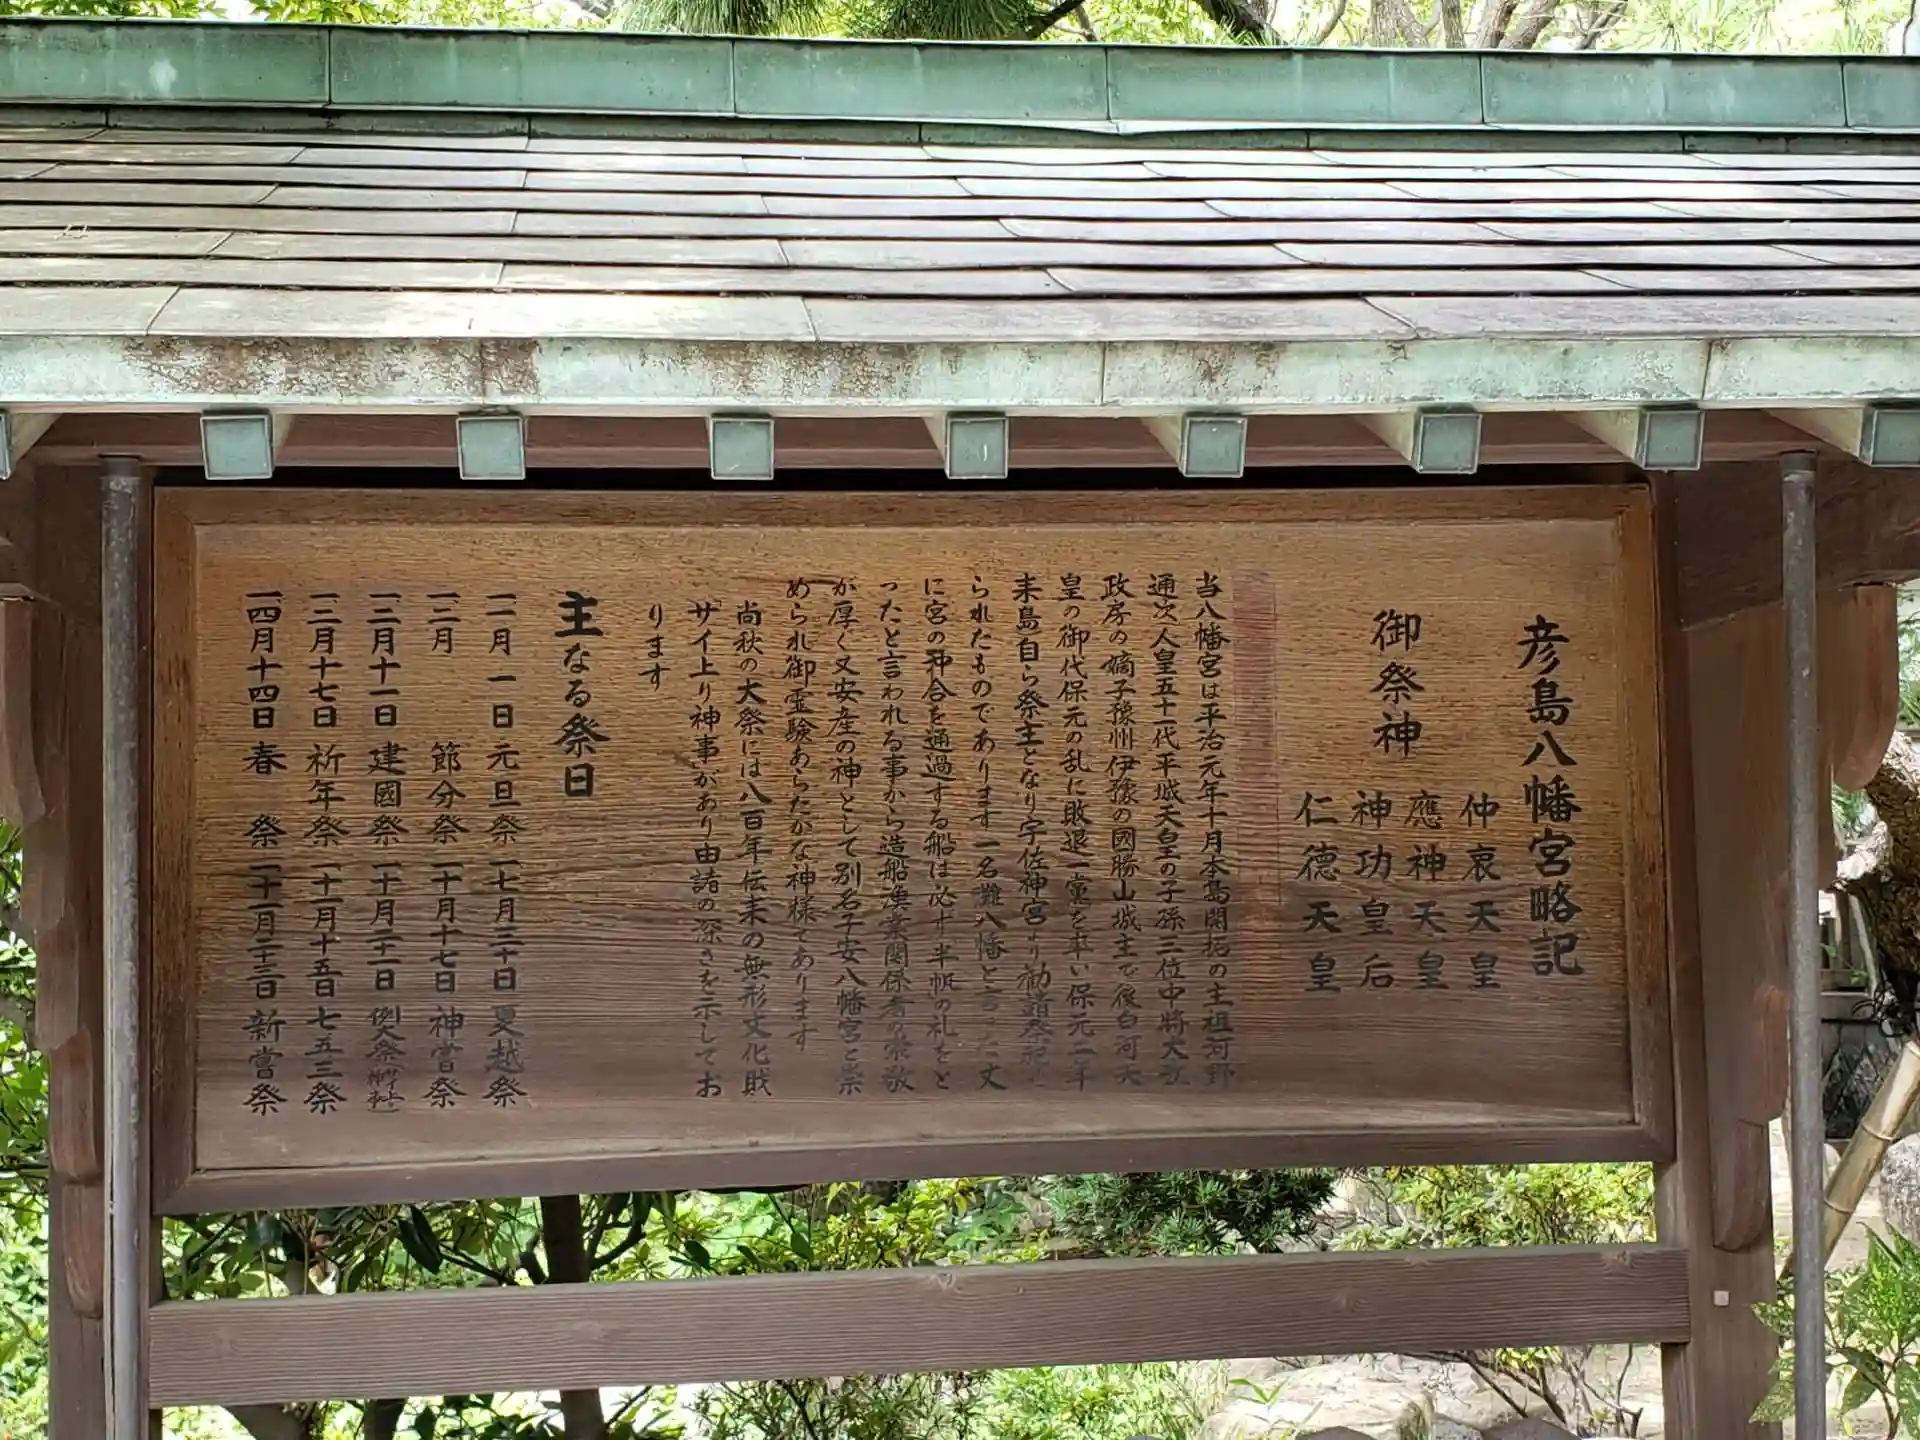 彦島八幡宮略記
御祭神
仲哀天皇
應神天皇
神功皇后
仁德天皇
当八幡宮は平治元年十月本島開拓の土祖河野
通次人皇五十一代平城天皇の子孫三位中将大夜
政房の嫡子豫州伊豫の國勝山城主で後白河天
皇の御代保元の乱に敗退一党を率い保元二年
来島自ら祭主となり宇佐神宮より勧請祭祀せ
られたものであります一名灘八幡と言った丈
に宮の神合を通過する船は必す半帆の礼をと
ったと言われる事から造船漁業関係者の崇敬
が厚く又安産の神として別名子安八幡宮と崇
められ御霊験あらたかな神様であります
尚秋の大祭には八百年伝来の無形文化財
「サイ上り神事」があり由諸の深さを示してお
ります
主なる祭日
一一月一日 元旦祭 一七月三十日 夏越祭
一二月 節分祭 一十月十七日 神嘗祭
一二月十一日 建國祭 一十月二十一日 例大祭(サイ上り神事)
一三月十七日 祈年祭 一十一月十五日 七五三祭
一四月十四日 春祭 一十一月二十三日 新嘗祭